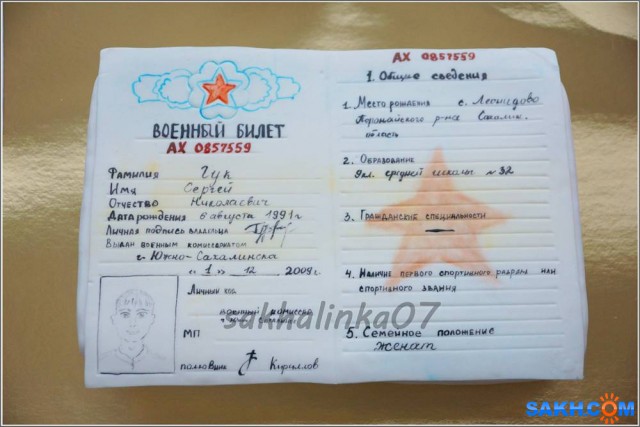 ВОЕННЫЙ БИЛЕТ
АХ 0857559
Фамилия Гук
Имя Сергей
Отчество Николаевич
Дата рождения 6 августа 1991г
Личная подпись владельца
Выдан военным комиссариатом
г. Южно-Сахалинска
« 1 » 12 2009г.
Личный код
военный комиссар
МП
Кириллов
АХ 0857559
1. Общие сведения
1. Место рождения с. Леонидово
Поронайского р-на Сахалин.
область
2. Образование
9кл. средней школы №32
3. Гражданские специальности
4. Наличие первого спортивного разряда или
спортивного звания
5. Семейное положение
женат
sakhalinka07
SAKH.COM